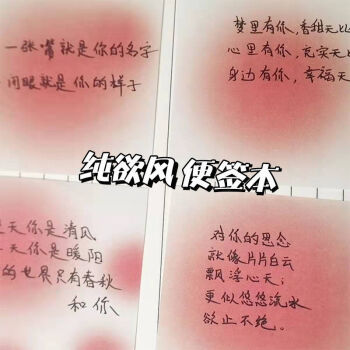 一张嘴就是你的名字
闭眼就是你的样子
梦里有你,香甜无比
心里有你,充实无比
身边有你,幸福无
纯欲风 便签本
天你是清风
天你是暖阳
的世界只有春秋
和你
对你的思念
就像片片白云
飘浮心天;
更似悠悠流水
欲止不绝。